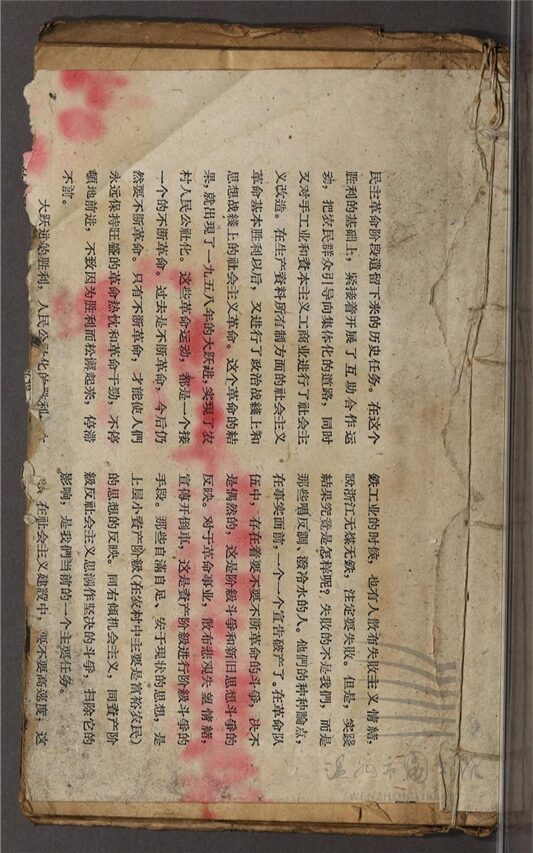 民主革命阶段遺留下来的历史任务。在这个
胜利的基础上，緊接着开展了互助合作运
动，把农民群众引导向集体化的道路，同时
又对手工业和資本主义工商业进行了社会主
义改造。在生产資料所有制方面的社会主义
革命基本胜利以后，又进行了政治战綫上和
思想战綫上的社会主义革命。这个革命的結
果，就出现了一九五八年的大跃进，实现了农
村人民公社化。这些革命运动，都是一个接
一个的不断革命。过去是不断革命，今后仍
然要不断革命。只有不断革命，才能使人們
永远保持旺盛的革命热忱和革命干劲，不停
頓地前进，不致因为胜利而松懈起来，停滞
不前。
大跃进的胜利，人民公社化的胜利
鉄工业的时候，也有人散布失敗主义情緒，
說浙江无煤无鉄，注定要失敗。但是，实踐
結果究竟是怎样呢？失敗的不是我們，而是
那些唱反調、潑冷水的人。他們的种种論点，
在事实面前，一个一个宣告破产了。在革命队
伍中，存在着要不要不断革命的斗爭，决不
是偶然的，这是阶級斗爭和新旧思想斗爭的
反映。对于革命事业，散布悲观失望情緒，
宣傳开倒車，这是資产阶級进行阶級斗爭的
手段。那些自滿自足、安于現状的思想，是
上层小資产阶級（在农村中主要是富裕农民）
的思想的反映。同右傾机会主义，同資产阶
級反社会主义思潮作坚决的斗爭，扫除它的
影响，是我們当前的一个主要任务。
在社会主义建設中，要不要高速度，这
温州市图书馆
WENZHOU LIBRARY